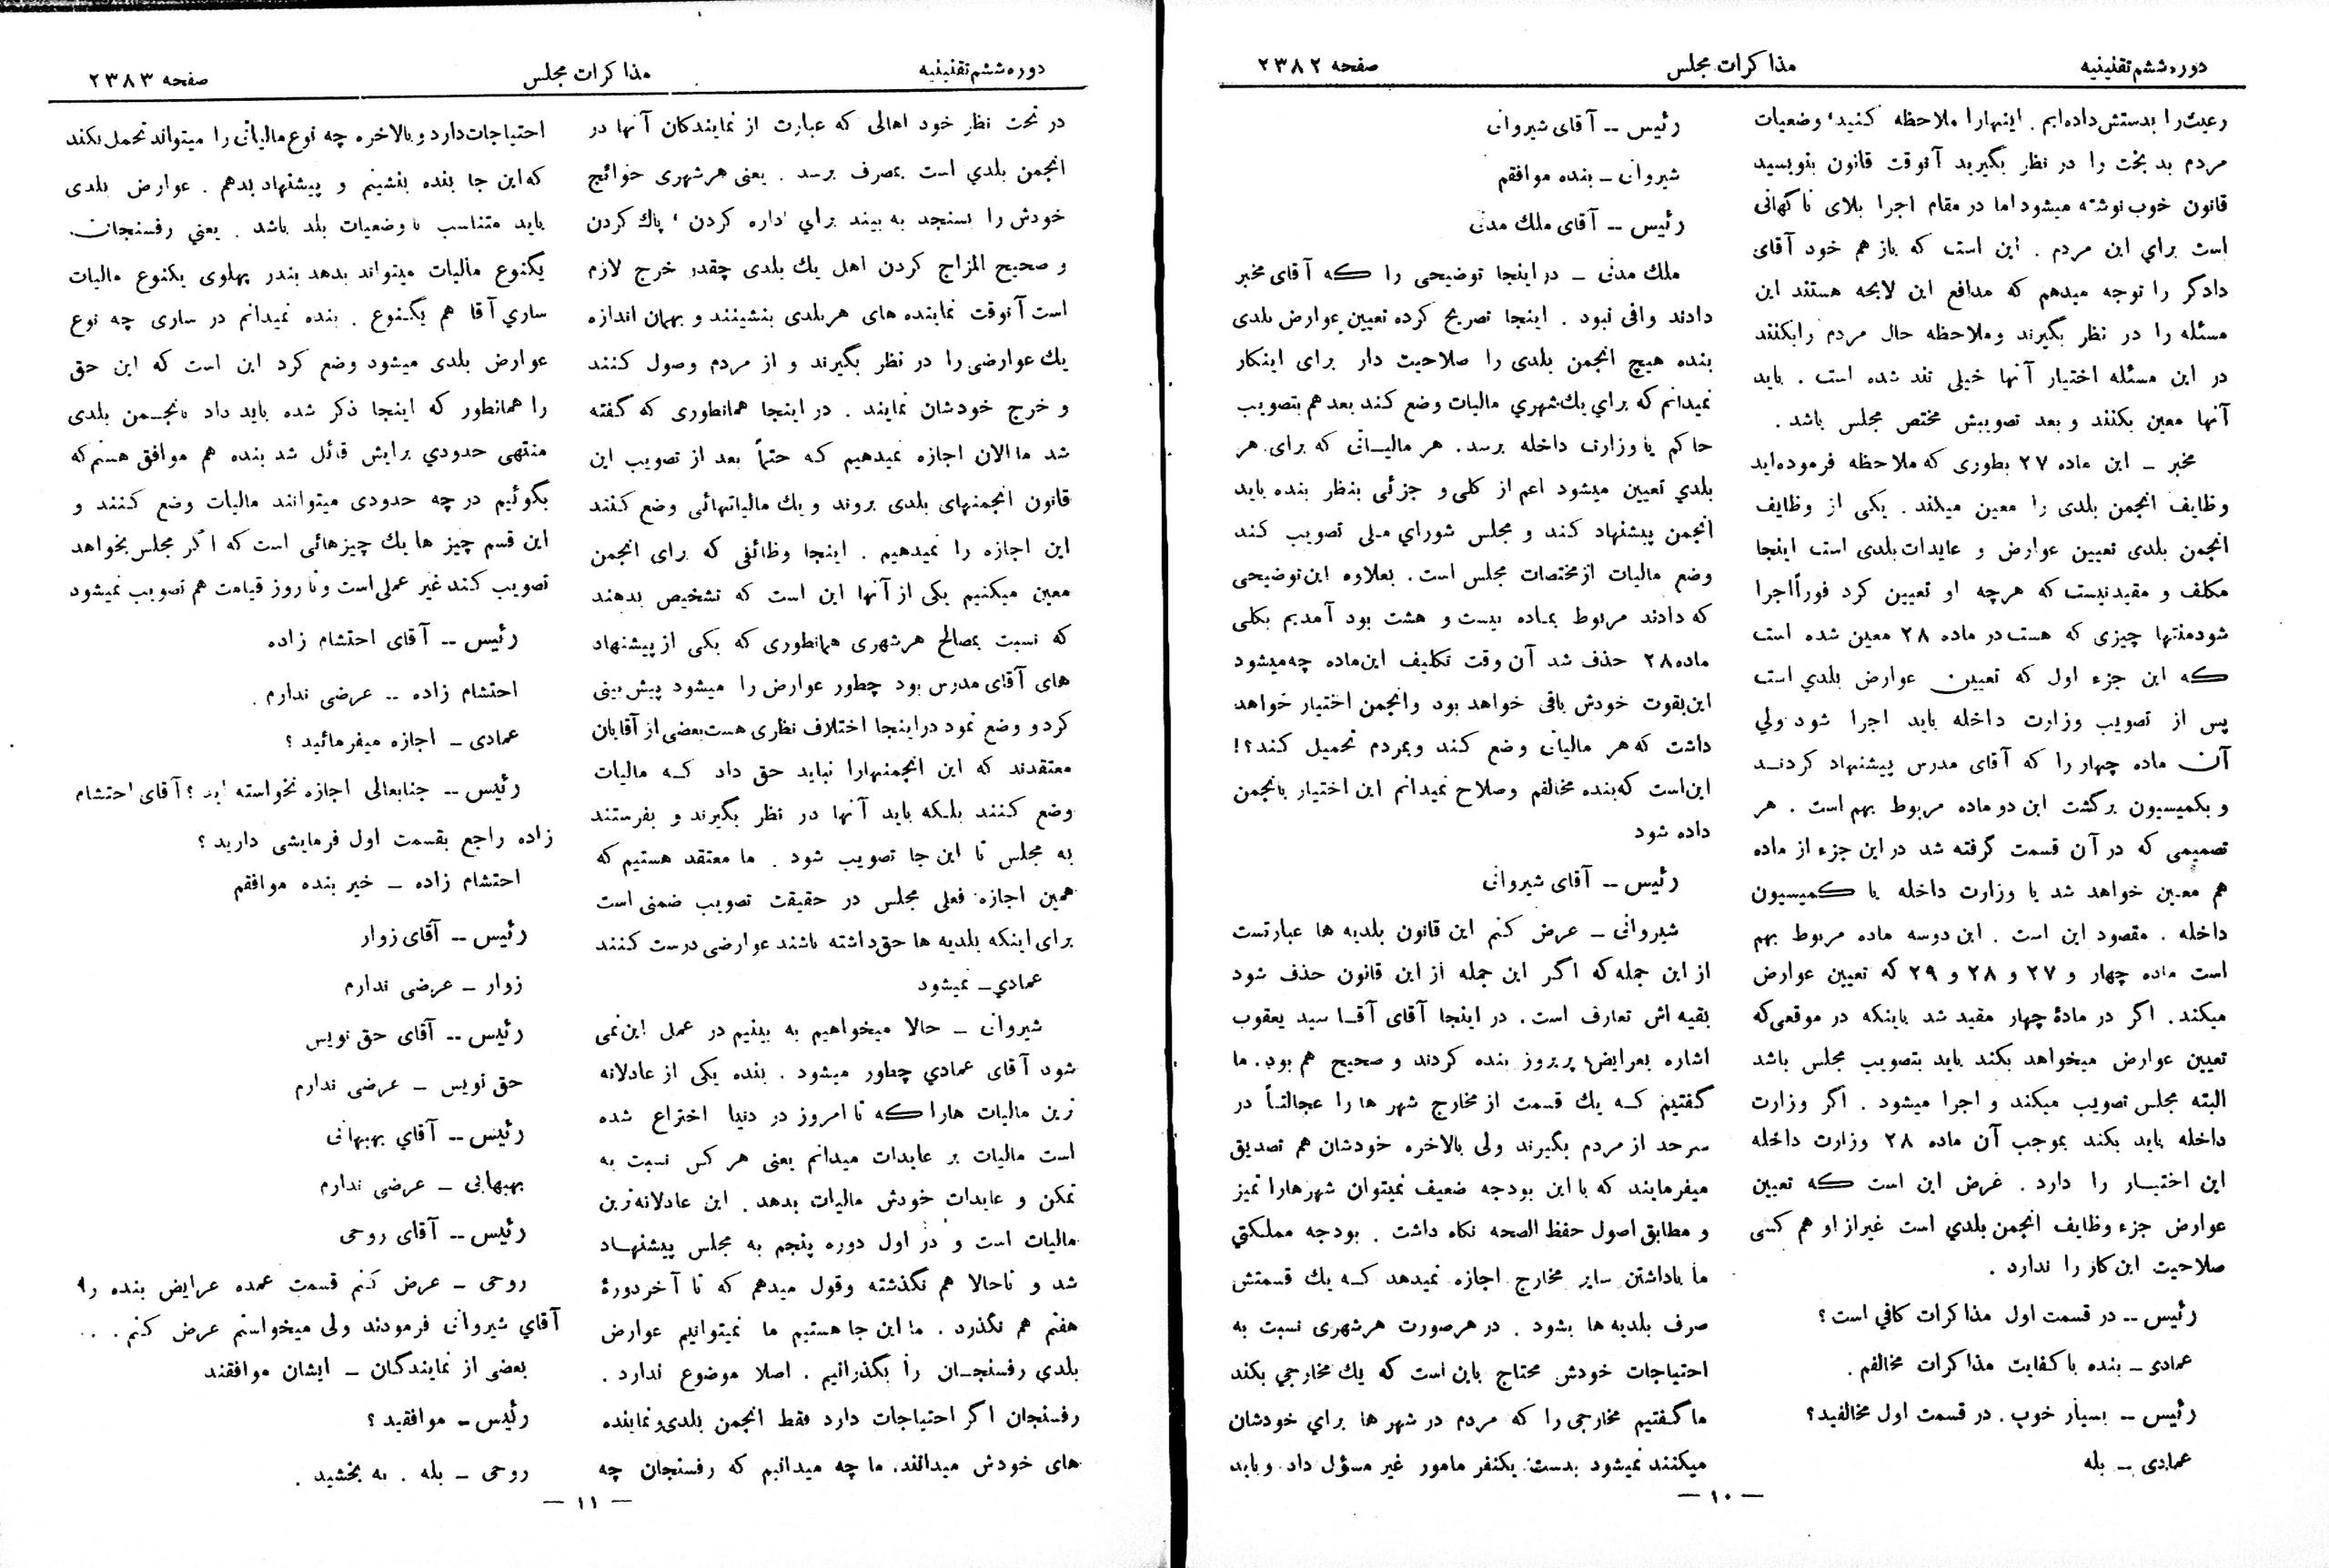 دوره ششم تقنینیه
مذاکرات مجلس
صفحه ۲۳۸۲
رعیت را بدستش داده‌ایم. اینهارا ملاحظه کنید، وضعیات
مردم بدبخت را در نظر بگیرید آنوقت قانون بنویسید
قانون خوب نوشته میشود اما در مقام اجرا بلای ناگهانی
است برای این مردم. این است که باز هم خود آقای
دادگر را توجه میدهم که مدافع این لایحه هستند این
مسئله را در نظر بگیرند و ملاحظه حال مردم را بکنند
در این مسئله اختیار آنها خیلی تند شده است. باید
آنها معین بکنند و بعد تصویبش مختص مجلس باشد.
مخبر ـ این ماده ۲۷ بطوری که ملاحظه فرموده‌اید
وظایف انجمن بلدی را معین میکند. یکی از وظایف
انجمن بلدی تعیین عوارض و عایدات بلدی است اینجا
مکلف و مقید نیست که هرچه او تعیین کرد فوراً اجرا
شود منتها چیزی که هست در ماده ۲۸ معین شده است
که این جزء اول که تعیین عوارض بلدی است
پس از تصویب وزارت داخله باید اجرا شود ولی
آن ماده چهار را که آقای مدرس پیشنهاد کردند
و بکمیسیون برگشت این دو ماده مربوط بهم است. هر
تصمیمی که در آن قسمت گرفته شد در این جزء از ماده
هم معین خواهد شد یا وزارت داخله یا کمیسیون
داخله. مقصود این است. این دوسه ماده مربوط بهم
است ماده چهار و ۲۷ و ۲۸ و ۲۹ که تعیین عوارض
میکند. اگر در مادهٔ چهار مقید شد باینکه در موقعی‌که
تعیین عوارض میخواهد بکند باید بتصویب مجلس باشد
البته مجلس تصویب میکند و اجرا میشود. اگر وزارت
داخله باید بکند بموجب آن ماده ۲۸ وزارت داخله
این اختیار را دارد. غرض این است که تعیین
عوارض جزء وظایف انجمن بلدی است غیر از او هم کسی
صلاحیت این کار را ندارد.
رئیس ـ در قسمت اول مذاکرات کافی است؟
عمادی ـ بنده با کفایت مذاکرات مخالفم.
رئیس ـ بسیار خوب. در قسمت اول مخالفید؟
عمادی ـ بله
رئیس ـ آقای شیروانی
شیروانی ـ بنده موافقم
رئیس ـ آقای ملك مدنی
ملك مدنی ـ در اینجا توضیحی را که آقای مخبر
دادند وافی نبود. اینجا تصریح کرده تعیین عوارض بلدی
بنده هیچ انجمن بلدی را صلاحیت دار برای اینکار
نمیدانم که برای یك شهری مالیات وضع کند بعد هم بتصویب
حاکم یا وزارت داخله برسد. هر مالیاتی که برای هر
بلدی تعیین میشود اعم از کلی و جزئی بنظر بنده باید
انجمن پیشنهاد کند و مجلس شورای ملی تصویب کند
وضع مالیات از مختصات مجلس است. بعلاوه این توضیحی
که دادند مربوط بماده بیست و هشت بود آمدیم بکلی
ماده ۲۸ حذف شد آن وقت تکلیف این ماده چه میشود
این بقوت خودش باقی خواهد بود و انجمن اختیار خواهد
داشت که هر مالیاتی وضع کند و بمردم تحمیل کند؟!
این است که بنده مخالفم و صلاح نمیدانم این اختیار بانجمن
داده شود
رئیس ـ آقای شیروانی
شیروانی ـ عرض کنم این قانون بلدیه ها عبارتست
از این جمله که اگر این جمله از این قانون حذف شود
بقیه اش تعارف است. در اینجا آقای آقا سید یعقوب
اشاره بعرایض پریروز بنده کردند و صحیح هم بود. ما
گفتیم که یك قسمت از مخارج شهر ها را عجالتاً در
سرحد از مردم بگیرند ولی بالاخره خودشان هم تصدیق
میفرمایند که با این بودجه ضعیف نمیتوان شهرهارا تمیز
و مطابق اصول حفظ الصحه نگاه داشت. بودجه مملکتی
ما باداشتن سایر مخارج اجازه نمیدهد که یك قسمتش
صرف بلدیه ها بشود. در هرصورت هرشهری نسبت به
احتیاجات خودش محتاج باین است که یك مخارجی بکند
ما گفتیم مخارجی را که مردم در شهر ها برای خودشان
میکنند نمیشود بدست یکنفر مامور غیر مسؤل داد و باید
ـ ۱۰ ـ
دوره ششم تقنینیه
مذاکرات مجلس
صفحه ۲۳۸۳
در تحت نظر خود اهالی که عبارت از نمایندگان آنها در
انجمن بلدی است بمصرف برسد. یعنی هرشهری حوائج
خودش را بسنجد به بیند برای اداره کردن، پاك کردن
و صحیح المزاج کردن اهل یك بلدی چقدر خرج لازم
است آنوقت نماینده های هربلدی بنشینند و بهمان اندازه
یك عوارضی را در نظر بگیرند و از مردم وصول کنند
و خرج خودشان نمایند. در اینجا همانطوری که گفته
شد ما الان اجازه نمیدهیم که حتماً بعد از تصویب این
قانون انجمنهای بلدی بروند و یك مالیاتهائی وضع کنند
این اجازه را نمیدهیم. اینجا وظائفی که برای انجمن
معین میکنیم یکی از آنها این است که تشخیص بدهند
که نسبت بمصالح هرشهری همانطوری که یکی از پیشنهاد
های آقای مدرس بود چطور عوارض را میشود پیش بینی
کرد و وضع نمود در اینجا اختلاف نظری هست بعضی از آقایان
معتقدند که این انجمنهارا نباید حق داد که مالیات
وضع کنند بلکه باید آنها در نظر بگیرند و بفرستند
به مجلس تا این جا تصویب شود. ما معتقد هستیم که
همین اجازه فعلی مجلس در حقیقت تصویب ضمنی است
برای اینکه بلدیه ها حق داشته باشند عوارضی درست کنند
عمادی ـ نمیشود
شیروانی ـ حالا میخواهیم به بینیم در عمل این نمی
شود آقای عمادی چطور میشود. بنده یکی از عادلانه
ترین مالیات هارا که تا امروز در دنیا اختراع شده
است مالیات بر عایدات میدانم یعنی هر کس نسبت به
تمکن و عایدات خودش مالیات بدهد. این عادلانه‌ترین
مالیات است و در اول دوره پنجم به مجلس پیشنهاد
شد و تاحالا هم نگذشته وقول میدهم که تا آخر دورهٔ
هفتم هم نگذرد. ما این جا هستیم ما نمیتوانیم عوارض
بلدی رفسنجان را بگذرانیم. اصلا موضوع ندارد.
رفسنجان اگر احتیاجات دارد فقط انجمن بلدی و نماینده
های خودش میدانند. ما چه میدانیم که رفسنجان چه
احتیاجات دارد و بالاخره چه نوع مالیاتی را میتواند تحمل بکند
که این جا بنده بنشینم و پیشنهاد بدهم. عوارض بلدی
باید متناسب با وضعیات بلد باشد. یعنی رفسنجان
یکنوع مالیات میتواند بدهد بندر پهلوی یکنوع مالیات
ساری آقا هم یکنوع. بنده نمیدانم در ساری چه نوع
عوارض بلدی میشود وضع کرد این است که این حق
را همانطور که اینجا ذکر شده باید داد بانجمن بلدی
منتهی حدودی برایش قائل شد بنده هم موافق هستم که
بگوئیم در چه حدودی میتوانند مالیات وضع کنند و
این قسم چیز ها یك چیزهائی است که اگر مجلس بخواهد
تصویب کند غیر عملی است و تا روز قیامت هم تصویب نمیشود
رئیس ـ آقای احتشام زاده
احتشام زاده ـ عرضی ندارم.
عمادی ـ اجازه میفرمائید؟
رئیس ـ جنابعالی اجازه نخواسته اید؟ آقای احتشام
زاده راجع بقسمت اول فرمایشی دارید؟
احتشام زاده ـ خیر بنده موافقم
رئیس ـ آقای زوار
زوار ـ عرضی ندارم
رئیس ـ آقای حق نویس
حق نویس ـ عرضی ندارم
رئیس ـ آقای بهبهانی
بهبهانی ـ عرضی ندارم
رئیس ـ آقای روحی
روحی ـ عرض کنم قسمت عمده عرایض بنده را
آقای شیروانی فرمودند ولی میخواستم عرض کنم...
بعضی از نمایندگان ـ ایشان موافقند
رئیس ـ موافقید؟
روحی ـ بله. به بخشید.
ـ ۱۱ ـ